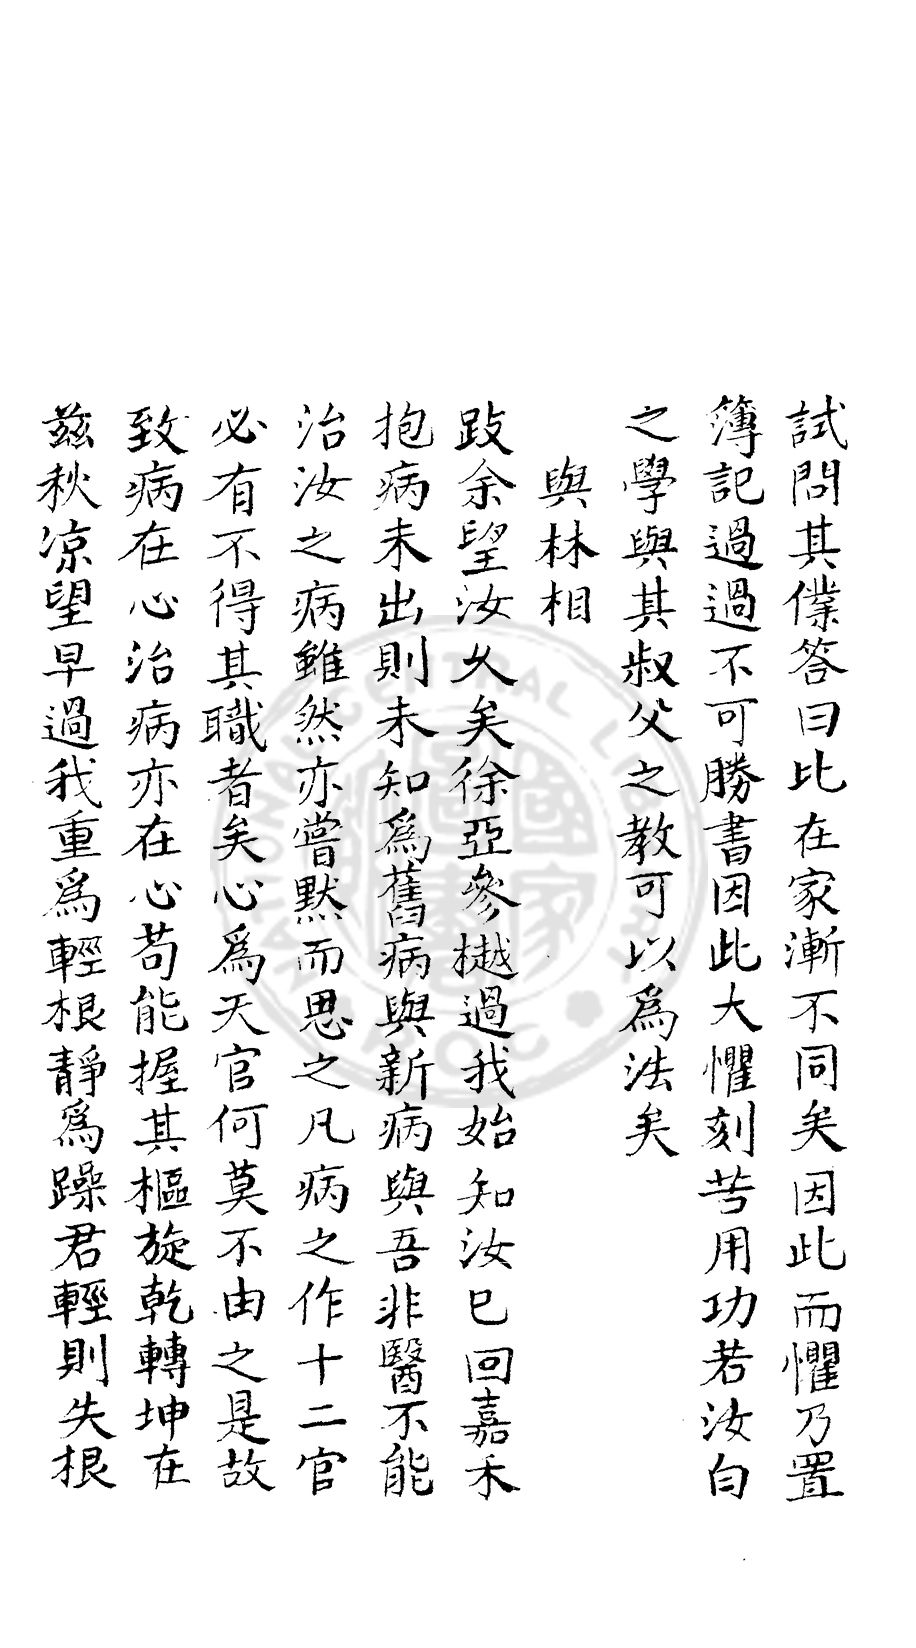 試問其僕答曰比在家漸不同矣因此而懼乃置
簿記過過不可勝書因此大懼刻苦用功若汝白
之學與其叔父之教可以為法矣
與林相
跂余望汝久矣徐亞參樾過我始知汝已回嘉禾
抱病未出則未知為舊病與新病與吾非醫不能
治汝之病雖然亦嘗默而思之凡病之作十二官
必有不得其職者矣心為天官何莫不由之是故
致病在心治病亦在心苟能握其樞旋乾轉坤在
茲秋凉望早過我重為輕根靜為躁君輕則失根
NATIONAL CENTRAL LIBRARY R.O.C
國家圖書